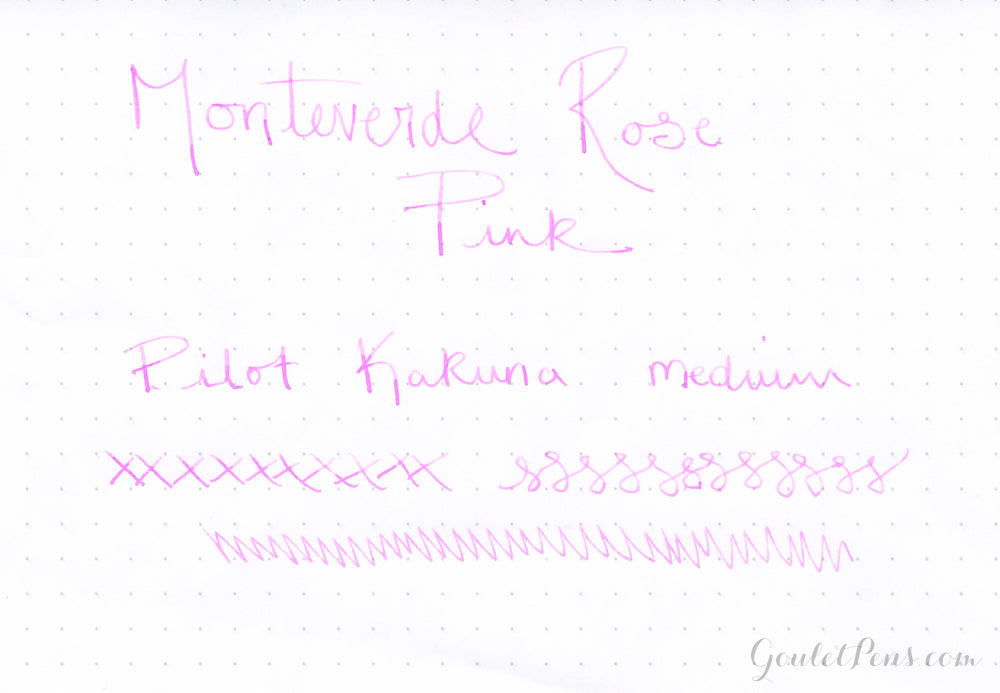 Monteverde Rose
Pink
Pilot Kakuna medium
xxxxxxxxxx sssssssssssss
GouletPens.com